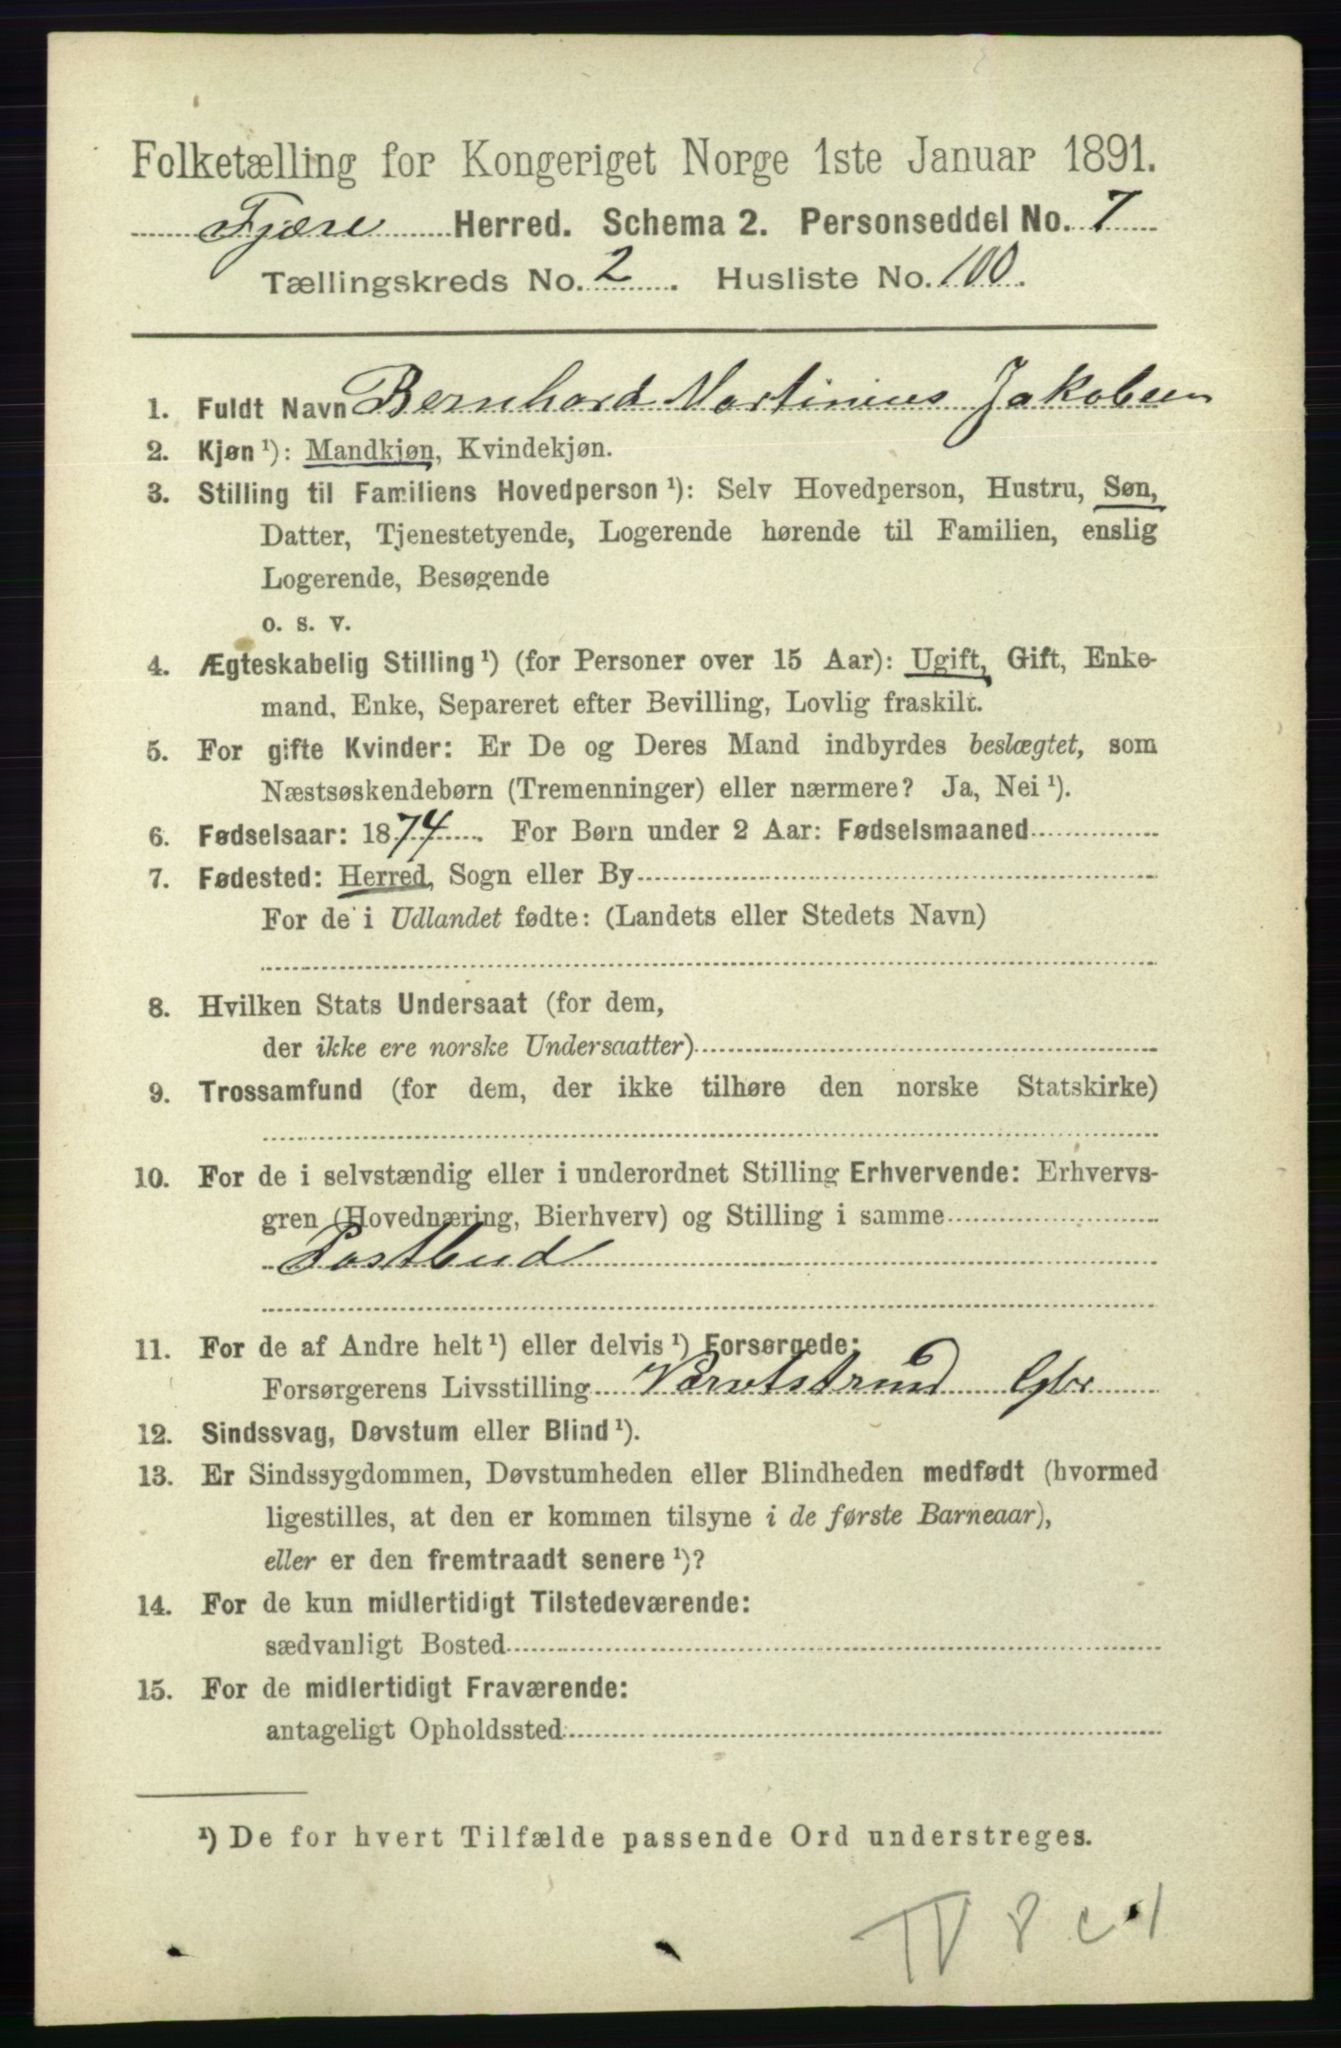 Folketælling for Kongeriget Norge 1ste Januar 1891.
Fjære Herred. Schema 2. Personseddel No. 7
Tællingskreds No. 2. Husliste No. 100.
1. Fuldt Navn Bernhard Martinius Jakobsen
2. Kjøn ¹): Mandkjøn, Kvindekjøn.
3. Stilling til Familiens Hovedperson ¹): Selv Hovedperson, Hustru, Søn,
Datter, Tjenestetyende, Logerende hørende til Familien, enslig
Logerende, Besøgende
o. s. v.
4. Ægteskabelig Stilling ¹) (for Personer over 15 Aar): Ugift, Gift, Enke-
mand, Enke, Separeret efter Bevilling, Lovlig fraskilt.
5. For gifte Kvinder: Er De og Deres Mand indbyrdes beslægtet, som
Næstsøskendebørn (Tremenninger) eller nærmere? Ja, Nei ¹).
6. Fødselsaar: 1874. For Børn under 2 Aar: Fødselsmaaned
7. Fødested: Herred, Sogn eller By
For de i Udlandet fødte: (Landets eller Stedets Navn)
8. Hvilken Stats Undersaat (for dem,
der ikke ere norske Undersaatter)
9. Trossamfund (for dem, der ikke tilhøre den norske Statskirke)
10. For de i selvstændig eller i underordnet Stilling Erhvervende: Erhvervs-
gren (Hovednæring, Bierhverv) og Stilling i samme
Postbud
11. For de af Andre helt ¹) eller delvis ¹) Forsørgede:
Forsørgerens Livsstilling
12. Sindssvag, Døvstum eller Blind ¹).
13. Er Sindssygdommen, Døvstumheden eller Blindheden medfødt (hvormed
ligestilles, at den er kommen tilsyne i de første Barneaar),
eller er den fremtraadt senere ¹)?
14. For de kun midlertidigt Tilstedeværende:
sædvanligt Bosted
15. For de midlertidigt Fraværende:
antageligt Opholdssted
¹) De for hvert Tilfælde passende Ord understreges.